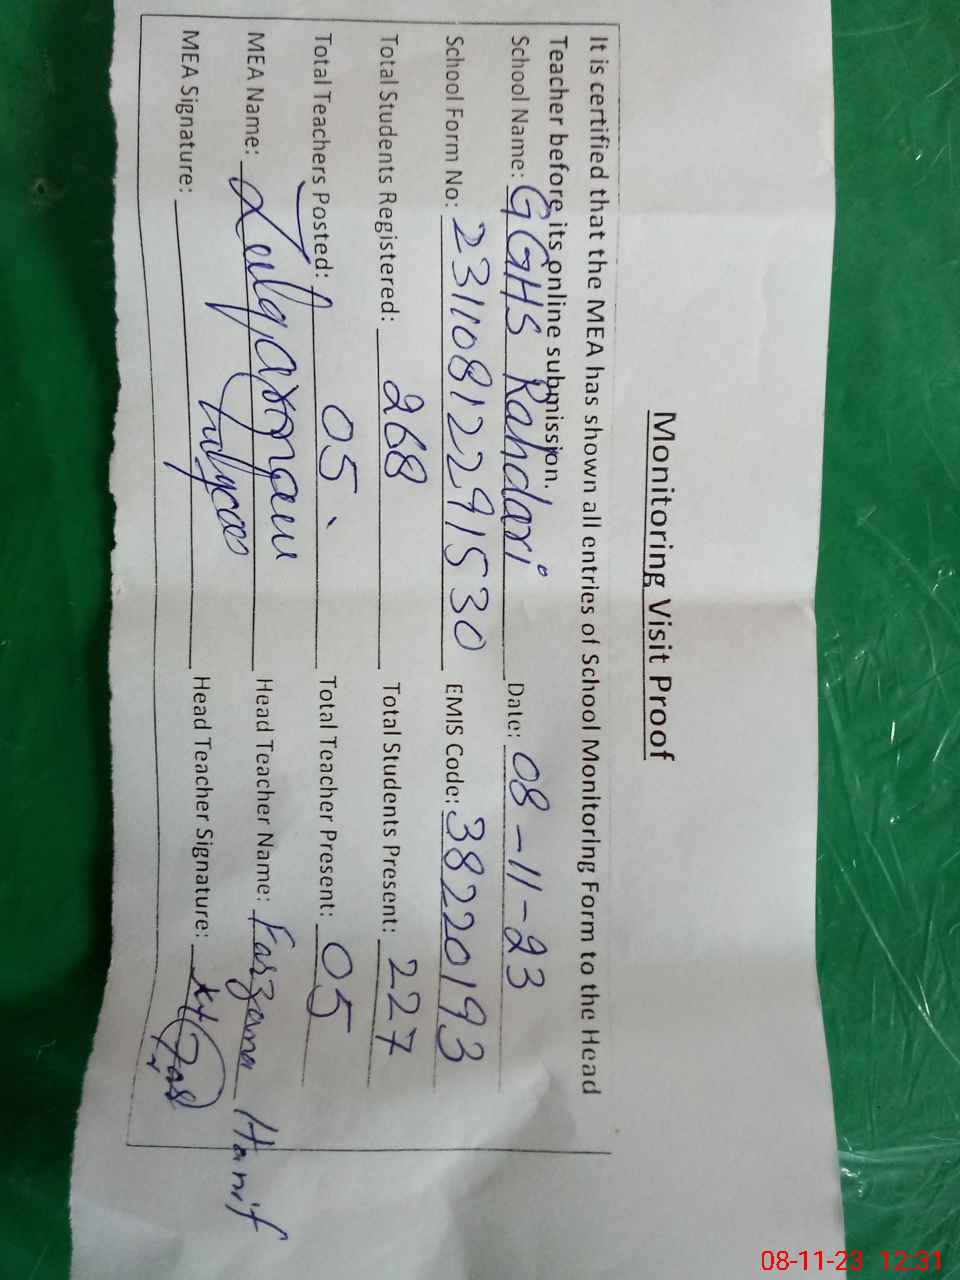 Monitoring Visit Proof
It is certified that the MEA has shown all entries of School Monitoring Form to the Head
Teacher before its online submission.
School Name: GGHS Rahdari Date: 08-11-23
School Form No: 23110812291530 EMIS Code: 38220193
Total Students Registered: 268 Total Students Present: 227
Total Teachers Posted: 05 Total Teacher Present: 05
MEA Name: Head Teacher Name: Farzana Hanif
MEA Signature: Head Teacher Signature:
08-11-23 12:31